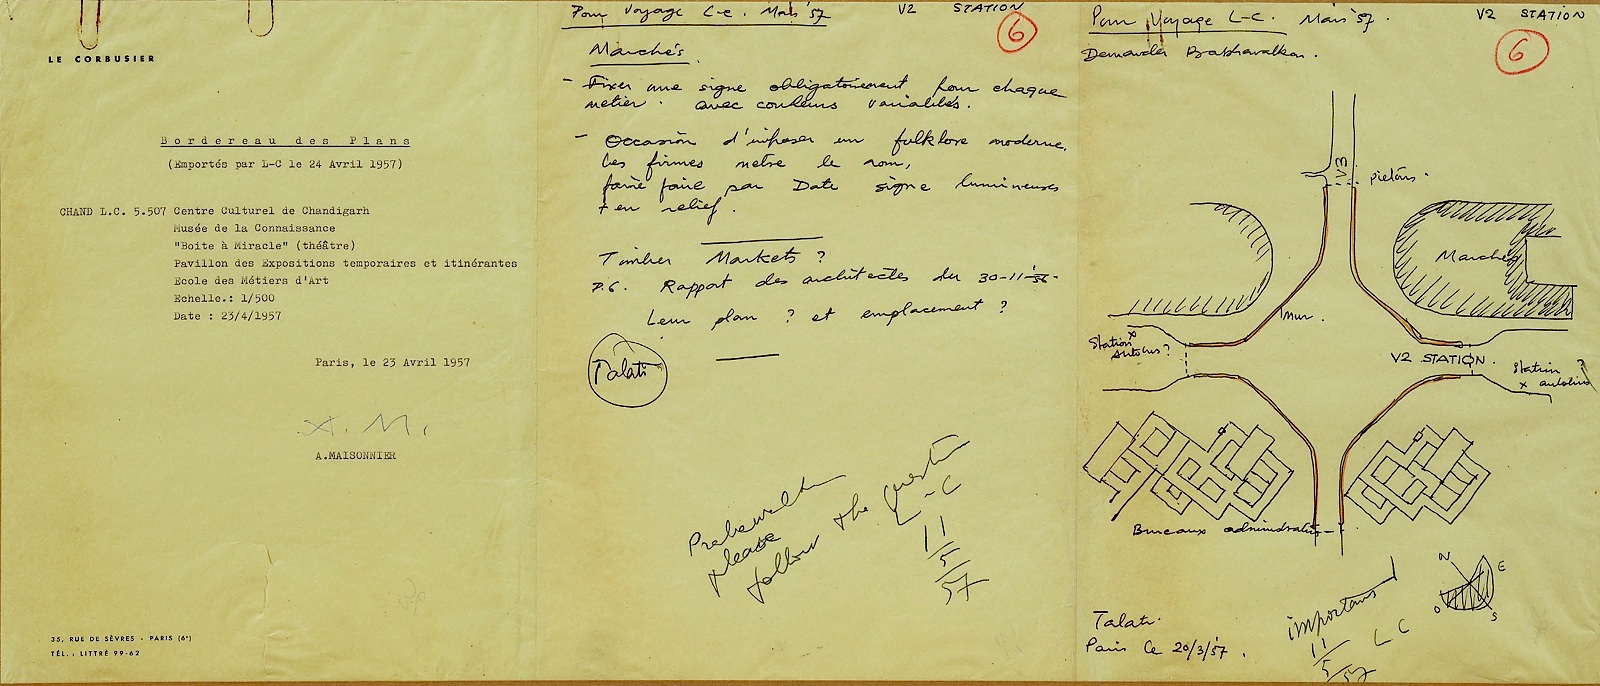 LE CORBUSIER
Bordereau des Plans
(Emportés par L-C le 24 Avril 1957)
CHAND L.C. 5.507 Centre Culturel de Chandigarh
Musée de la Connaissance
"Boite à Miracle" (théâtre)
Pavillon des Expositions temporaires et itinérantes
Ecole des Métiers d'Art
Echelle.: 1/500
Date : 23/4/1957
Paris, le 23 Avril 1957
A. M.
A.MAISONNIER
35, RUE DE SÈVRES - PARIS (6e)
TÉL. : LITTRÉ 99-62
Pour Voyage L-C. Mars '57 V2 STATION
6
Marchés
- Fixer une signe obligatoirement pour chaque
métier. avec couleurs variables.
- Occasion d'imposer un folklore moderne.
Les firmes metre le nom,
faire faire par Date signe lumineuses
+ en relief.
Timber Markets ?
P.S. Rapport des architectes du 30-11-56-
Leur plan ? et emplacement ?
Talati
please
follow the question
L-C
11
5
57
Pour Voyage L-C. Mars '57. V2 STATION
6
Demander Prabhawalkar.
V3
pietons.
Marchés
mur.
Station
Autobus?
V2 STATION.
Station ?
x autobus
Bureaux administratifs
N
E
O
S
Talati.
Paris le 20/3/57.
important
11
5
57
LC